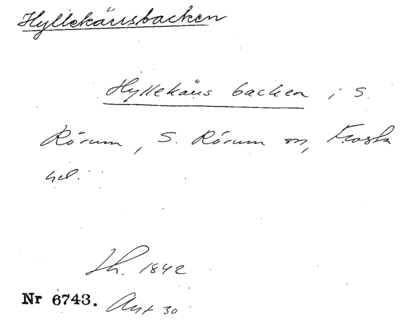 Hyllekäusbacken
Hyllekäus backen i S.
Rörum, S. Rörum sn, Frosta
hd.
Lh. 1842
Nr 6743. Avs 30